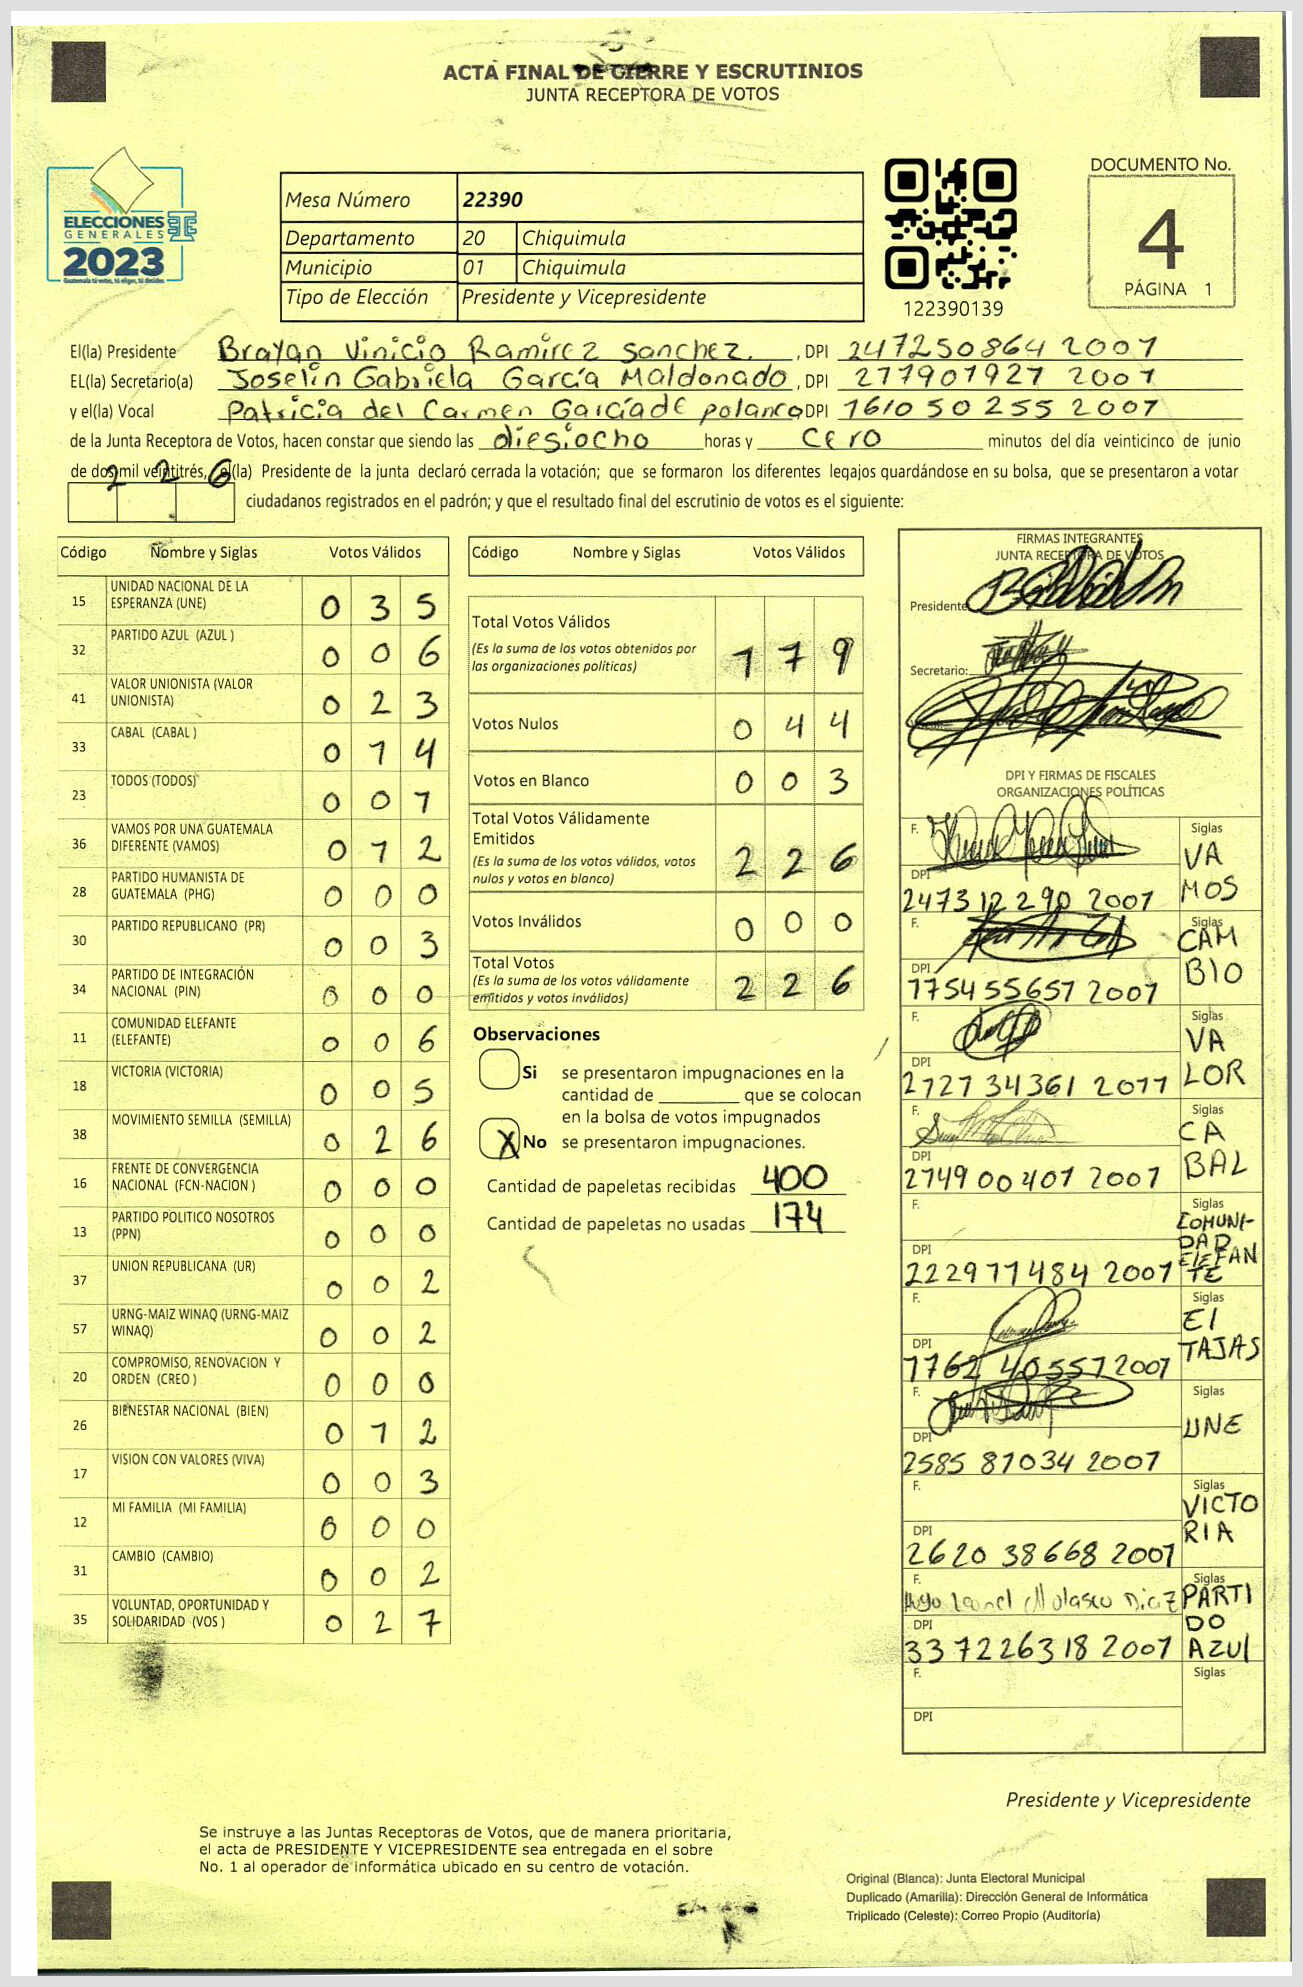 ACTA FINAL DE CIERRE Y ESCRUTINIOS
JUNTA RECEPTORA DE VOTOS
ELECCIONES
GENERALES
2023
Guatemala tú votas, tú eliges, tú decides
Mesa Número 22390
Departamento 20 Chiquimula
Municipio 01 Chiquimula
Tipo de Elección Presidente y Vicepresidente
122390139
DOCUMENTO No.
4
PÁGINA 1
El(la) Presidente Brayan Vinicio Ramirez Sanchez. , DPI 247250864 2001
EL(la) Secretario(a) Joselin Gabriela García Maldonado , DPI 277901927 2001
y el(la) Vocal Patricia del Carmen Garcíade polanco DPI 1610 50 255 2001
de la Junta Receptora de Votos, hacen constar que siendo las diesiocho horas y cero minutos del día veinticinco de junio
de dos mil veintitrés, el(la) Presidente de la junta declaró cerrada la votación; que se formaron los diferentes legajos guardándose en su bolsa, que se presentaron a votar
226 ciudadanos registrados en el padrón; y que el resultado final del escrutinio de votos es el siguiente:
Código Nombre y Siglas Votos Válidos
15 UNIDAD NACIONAL DE LA ESPERANZA (UNE) 0 3 5
32 PARTIDO AZUL (AZUL ) 0 0 6
41 VALOR UNIONISTA (VALOR UNIONISTA) 0 2 3
33 CABAL (CABAL ) 0 1 4
23 TODOS (TODOS) 0 0 1
36 VAMOS POR UNA GUATEMALA DIFERENTE (VAMOS) 0 1 2
28 PARTIDO HUMANISTA DE GUATEMALA (PHG) 0 0 0
30 PARTIDO REPUBLICANO (PR) 0 0 3
34 PARTIDO DE INTEGRACIÓN NACIONAL (PIN) 0 0 0
11 COMUNIDAD ELEFANTE (ELEFANTE) 0 0 6
18 VICTORIA (VICTORIA) 0 0 5
38 MOVIMIENTO SEMILLA (SEMILLA) 0 2 6
16 FRENTE DE CONVERGENCIA NACIONAL (FCN-NACION ) 0 0 0
13 PARTIDO POLITICO NOSOTROS (PPN) 0 0 0
37 UNION REPUBLICANA (UR) 0 0 2
57 URNG-MAIZ WINAQ (URNG-MAIZ WINAQ) 0 0 2
20 COMPROMISO, RENOVACION Y ORDEN (CREO ) 0 0 0
26 BIENESTAR NACIONAL (BIEN) 0 1 2
17 VISION CON VALORES (VIVA) 0 0 3
12 MI FAMILIA (MI FAMILIA) 0 0 0
31 CAMBIO (CAMBIO) 0 0 2
35 VOLUNTAD, OPORTUNIDAD Y SOLIDARIDAD (VOS ) 0 2 7
Código Nombre y Siglas Votos Válidos
Total Votos Válidos
(Es la suma de los votos obtenidos por
las organizaciones políticas) 1 7 9
Votos Nulos 0 4 4
Votos en Blanco 0 0 3
Total Votos Válidamente
Emitidos
(Es la suma de los votos válidos, votos
nulos y votos en blanco) 2 2 6
Votos Inválidos 0 0 0
Total Votos
(Es la suma de los votos válidamente
emitidos y votos inválidos) 2 2 6
Observaciones
Si se presentaron impugnaciones en la
cantidad de ________ que se colocan
en la bolsa de votos impugnados
X No se presentaron impugnaciones.
Cantidad de papeletas recibidas 400
Cantidad de papeletas no usadas 174
FIRMAS INTEGRANTES
JUNTA RECEPTORA DE VOTOS
Presidente
Secretario:
DPI Y FIRMAS DE FISCALES
ORGANIZACIONES POLÍTICAS
F. Siglas VAMOS
DPI 2473 12 290 2007
F. Siglas CAMBIO
DPI 1754 55657 2007
F. Siglas VALOR
DPI 2727 34361 2011
F. Siglas CABAL
DPI 2749 00 401 2001
F. Siglas COMUNIDAD ElEFANTE
DPI 2229 71484 2001
F. Siglas El TAJAS
DPI 1762 40557 2001
F. Siglas UNE
DPI 2585 81034 2001
F. Siglas VICTORIA
DPI 2620 38668 2001
F. Hugo Leonel Nolasco Diaz Siglas PARTIDO AZUl
DPI 3372263 18 2001
F. Siglas
DPI
Presidente y Vicepresidente
Se instruye a las Juntas Receptoras de Votos, que de manera prioritaria,
el acta de PRESIDENTE Y VICEPRESIDENTE sea entregada en el sobre
No. 1 al operador de informática ubicado en su centro de votación.
Original (Blanca): Junta Electoral Municipal
Duplicado (Amarilla): Dirección General de Informática
Triplicado (Celeste): Correo Propio (Auditoría)